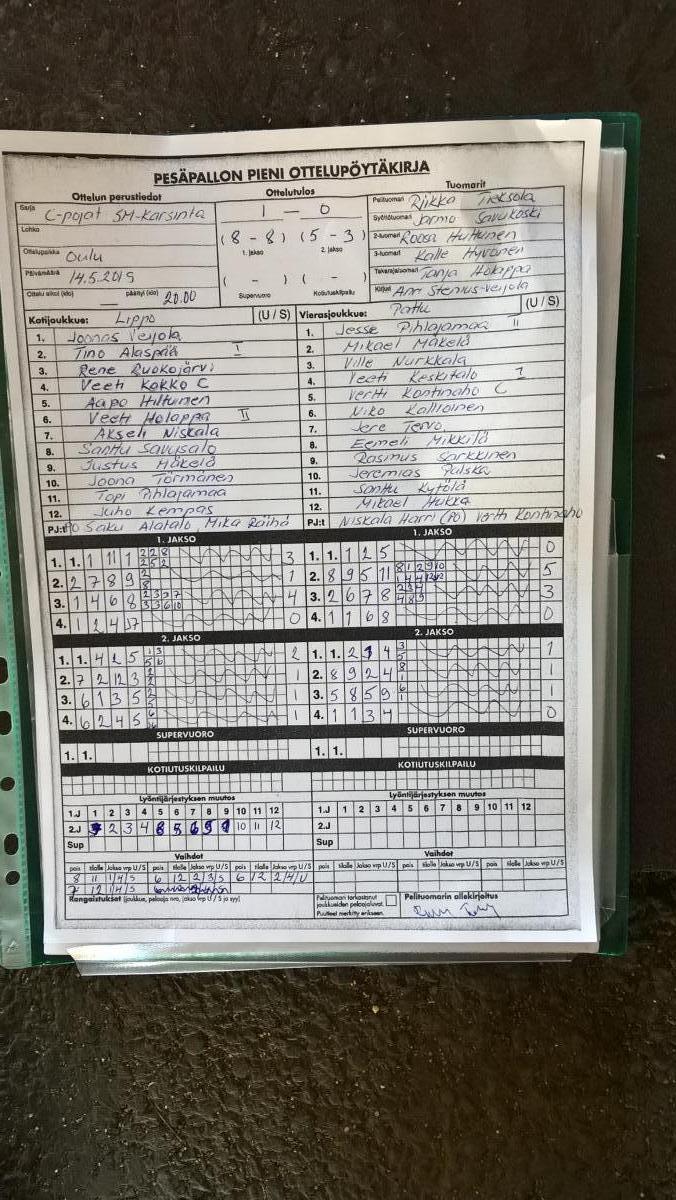 PESÄPALLON PIENI OTTELUPÖYTÄKIRJA
Ottelun perustiedot
Sarja C-pojat SM-karsinta
Lohko
Ottelupaikka Oulu
Päivämäärä 14.5.2019
Ottelu alkoi (klo) päättyi (klo) 20.00
Ottelutulos
1 — 0
(8 - 8) (5 - 3)
1. jakso 2. jakso
( - ) ( - )
Supervuoro Kotiutuskilpailu
Tuomarit
Pelituomari Riikka Tieksola
Syöttötuomari Jarmo Savukoski
2-tuomari Roosa Huttunen
3-tuomari Kalle Hyvönen
Takarajatuomari Tanja Holappa
Kirjuri Anr Stenius-Veijola
Kotijoukkue: Lippo (U / S)
1. Joonas Veijola
2. Tino Alaspää I
3. Rene Ruokojärvi
4. Veeti Kokko C
5. Aapo Hiltunen
6. Veeti Holappa II
7. Akseli Niskala
8. Santtu Savusalo
9. Justus Mäkelä
10. Joona Törmänen
11. Topi Pihlajamaa
12. Juho Kempas
PJ:t PO Saku Alatalo, Mika Räihä
Vierasjoukkue: Pattu (U / S)
1. Jesse Pihlajamaa II
2. Mikael Mäkelä
3. Ville Nurkkala
4. Veeti Keskitalo I
5. Vertti Kontinaho C
6. Niko Kallioinen
7. Jere Tervo
8. Eemeli Mikkilä
9. Rasmus Sarkkinen
10. Jeremias Pulska
11. Santtu Kytölä
12. Mikael Hukka
PJ:t Niskala Harri (PO) Vertti Kontinaho
1. JAKSO
1. 1. 1 11 1 3
2. 2 7 8 9 1
3. 1 4 6 8 4
4. 1 2 4 0
2. JAKSO
1. 1. 4 2 5 2
2. 7 2 12 3 1
3. 6 1 3 5 1
4. 6 2 4 5 1
SUPERVUORO
1. 1.
KOTIUTUSKILPAILU
1. JAKSO
1. 1. 1 2 5 0
2. 8 9 5 11 5
3. 2 6 7 8 3
4. 1 1 6 8 0
2. JAKSO
1. 1. 2 4 1
2. 8 9 2 4 1
3. 5 8 5 9 1
4. 1 1 3 4 0
SUPERVUORO
1. 1.
KOTIUTUSKILPAILU
Lyöntijärjestyksen muutos
1.J 1 2 3 4 5 6 7 8 9 10 11 12
2.J 2 3 4 10 11 12
Sup
Vaihdot
pois tilalle Jakso vrp U/S pois tilalle Jakso vrp U/S pois tilalle Jakso vrp U/S
8 11 1/4/S 6 12 2/3/S 6 12 2/4/U
7 12 1/4/S
Rangaistukset (joukkue, pelaaja nro, jakso vrp U / S ja syy)
Lyöntijärjestyksen muutos
1.J 1 2 3 4 5 6 7 8 9 10 11 12
2.J
Sup
Vaihdot
pois tilalle Jakso vrp U/S pois tilalle Jakso vrp U/S pois tilalle Jakso vrp U/S
Pelituomari tarkastanut
joukkueiden pelaajaluvat.
Puutteet merkitty erikseen.
Pelituomarin allekirjoitus